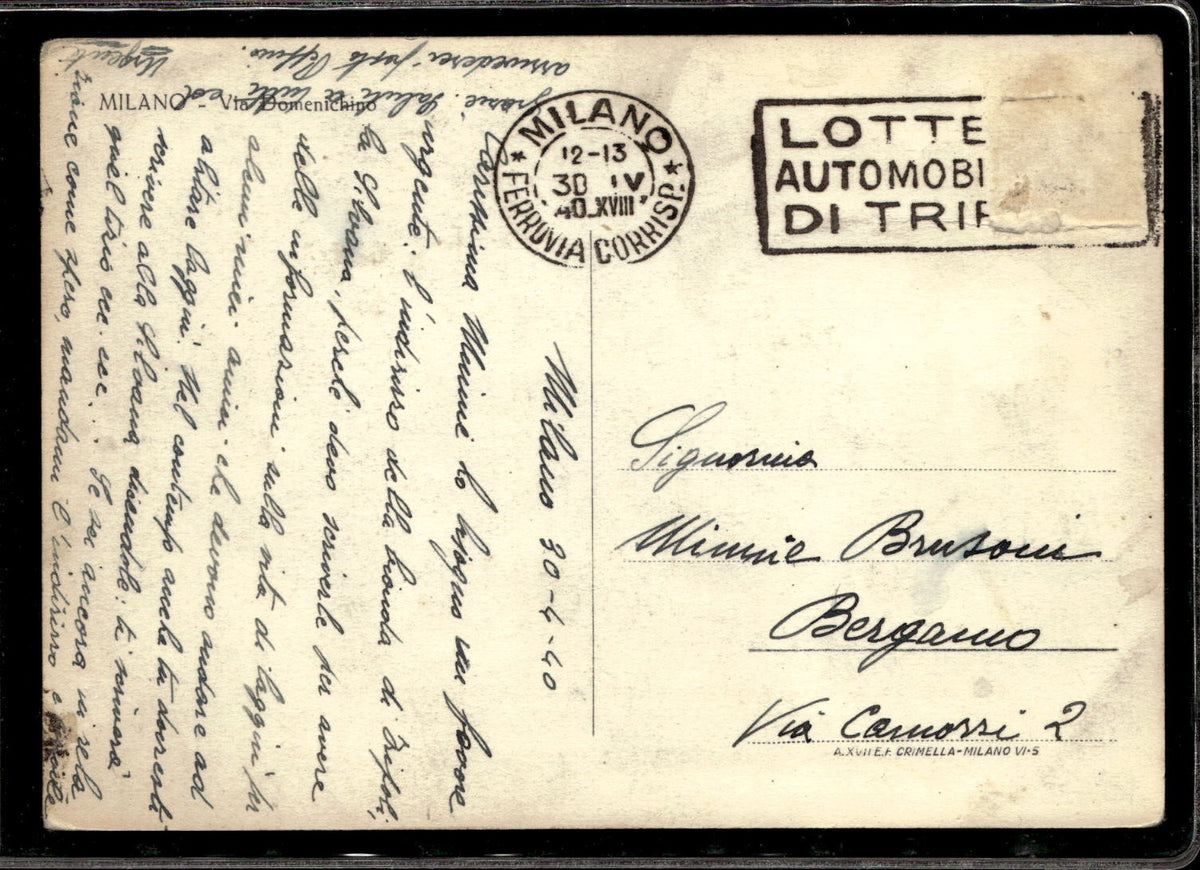 MILANO - Via Domenichino
MILANO
12-13
30 IV
40.XVIII
FERROVIA CORRISP.
LOTTE
AUTOMOBI
DI TRIP
Milano 30-4-40
Carissima Minnie ho bisogno un favore
urgente. L'indirizzo della bionda di
la Silvana, perché devo scriverle per avere
delle informazioni sulla vita di laggiù per
alcuni miei amici che devono andare ad
abitare laggiù. Nel contempo anch'io
scrivere alla Silvana dicendole: ti scriverà
quel tizio ecc. ecc... Se sei ancora in
come spero, mandami l'indirizzo e
Urgent.
grazie. Saluti a tutti ed
arrivederci presto
Signorina
Minnie Brusoni
Bergamo
Via Camozzi 2
A.XVII E.F. CRIMELLA-MILANO VI-5